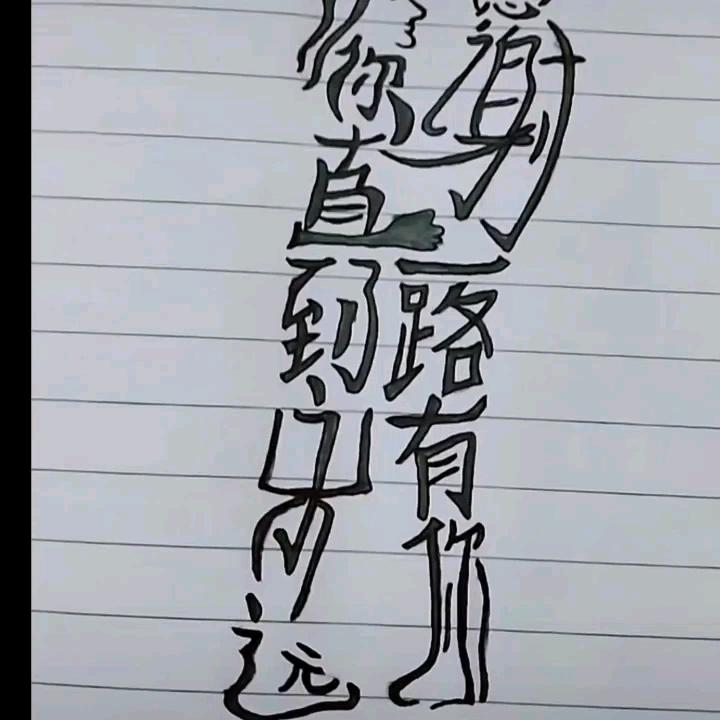 感谢一路有你
你直到永远